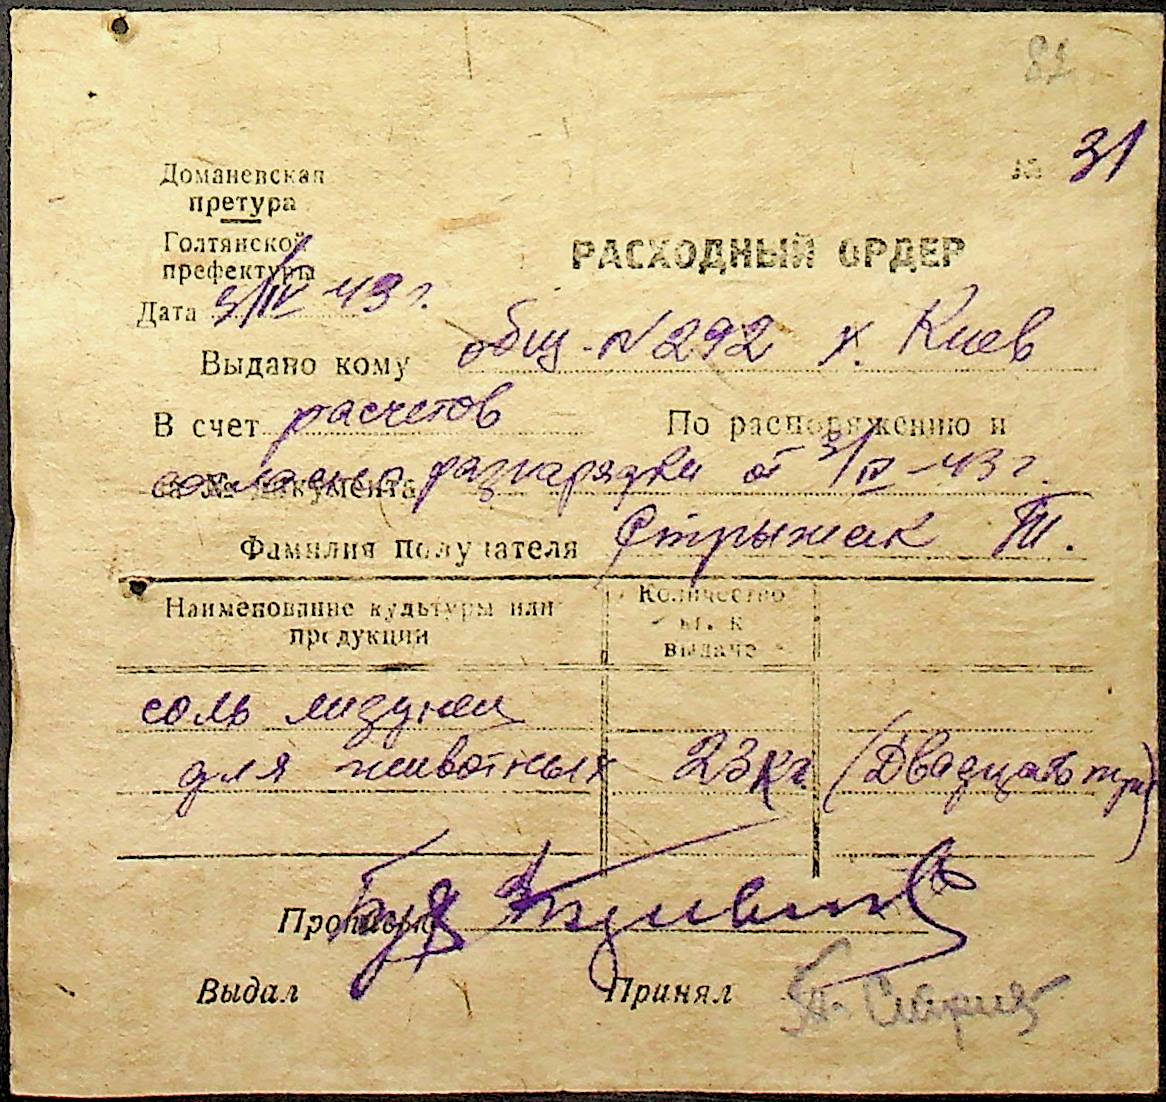 82
№ 31
Доманевская
претура
Голтянской
префектуры
РАСХОДНЫЙ ОРДЕР
Дата 3/IV 43 г.
Выдано кому общ. N 292 х. Киев
В счет расчетов По распоряжению и
за № документа согласно разнарядки от 3/IV-43 г.
Фамилия получателя Стрыжак Т.
Наименование культуры или продукции
Количество кг. к выдаче
соль лизунец
для животных 23 кг. (Двадцать три)
Прописью
Выдал Принял